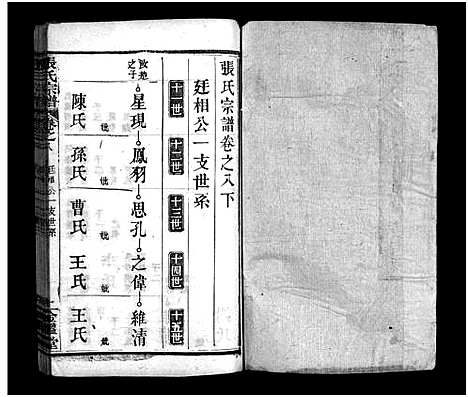 張氏宗譜卷之八下
廷相公一支世系
十一世 十二世 十三世 十四世 十五世
之子
星現 鳳羽 思孔 之偉 維清
陳氏 孫氏 曹氏 王氏 王氏
張氏宗譜 卷之八 廷相公一支世系
堂